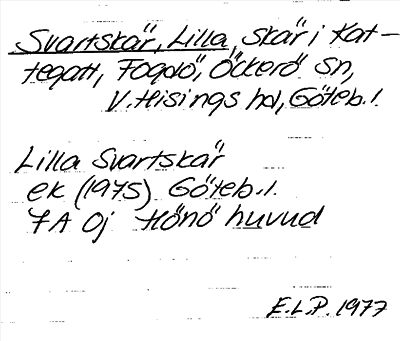 Svartskär, Lilla, skär i Kat-
tegatt, Fogdö, Öckerö sn,
V. Hisings hd, Göteb. l.
Lilla Svartskär
ek (1975) Göteb. l.
7A 0j Hönö huvud
E.L.P. 1977